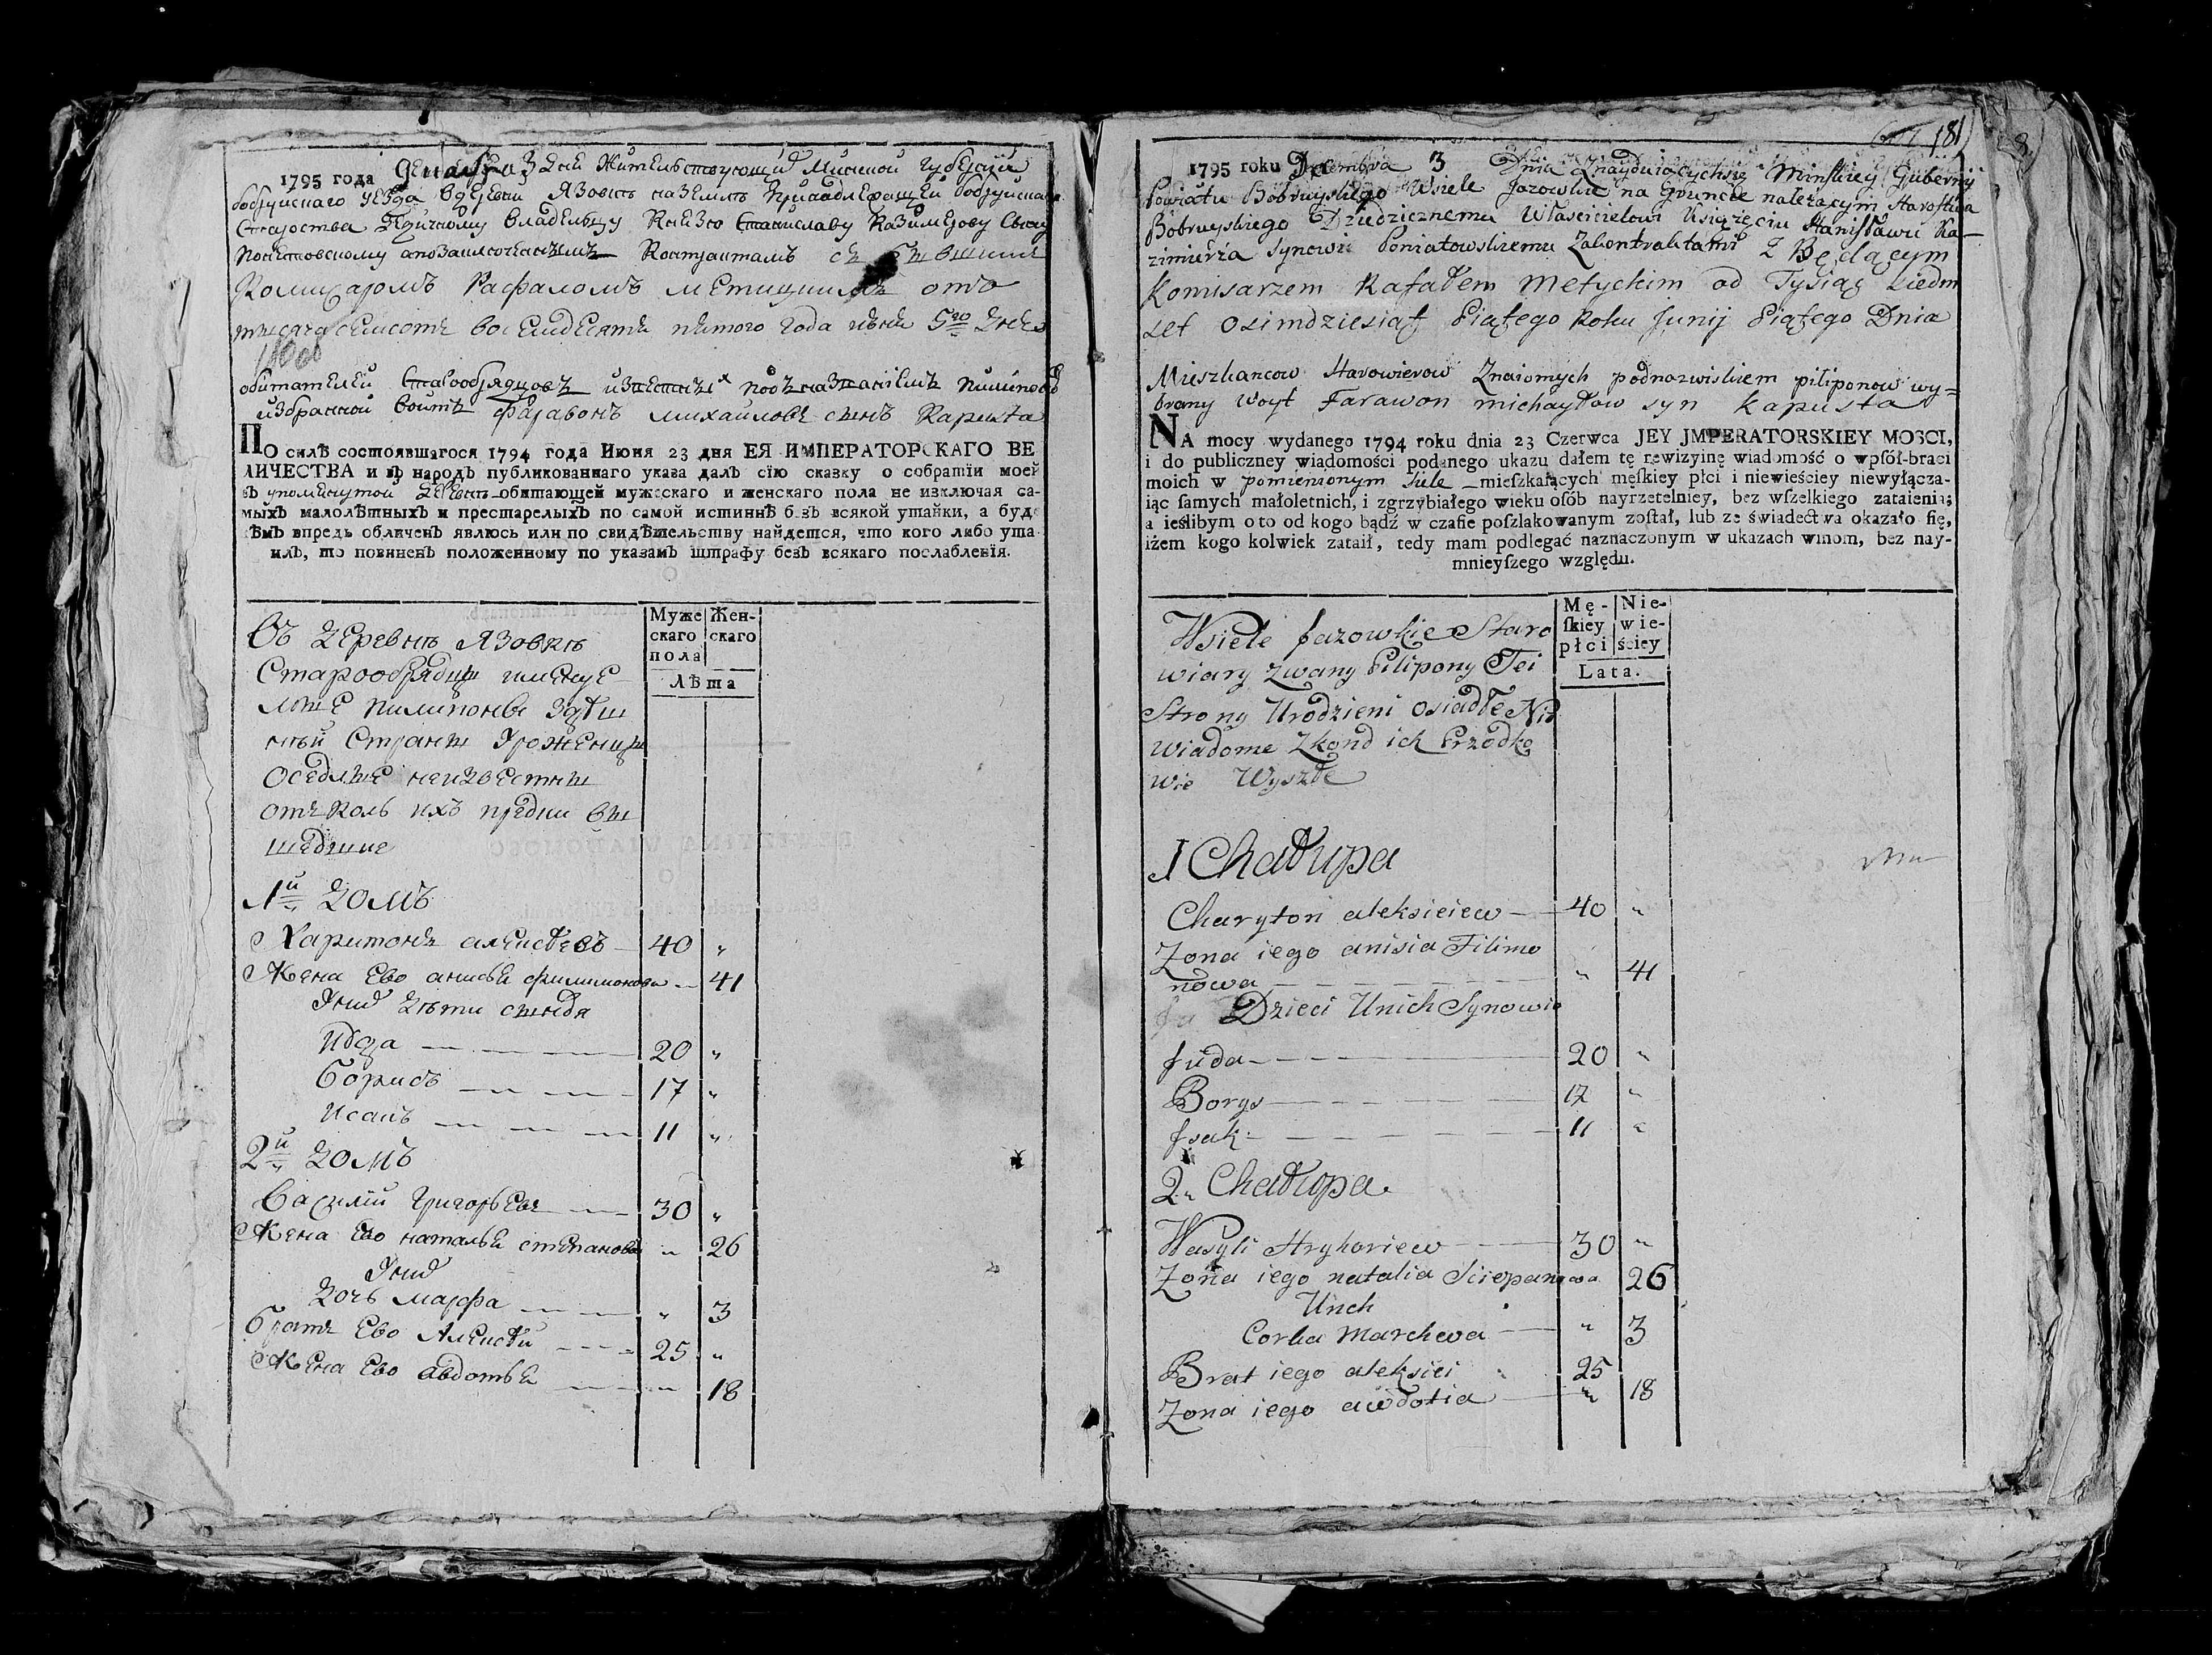 1795 года Декабра 3 дня Жителствующий Минской Губернии
бобруйскаго уезда вдеревни Язовкъ на земли Принадлежащей бобруйскаго
Староства Вечному Владельцу Князю Станиславу Казимерову Сыну
Понятовскому Контрактамъ съ бывшимъ
Комисаромъ Рафаломъ Метицкимъ отъ
тысяча семсотъ восемдесятъ пятого года июня 5го дня
обитателей Старообрядцовъ известных подъ названиемъ пилипоновъ
избранной воитъ Фарафонъ михайловъ сынъ Капуста
ПО силѣ состоявшагося 1794 года Июня 23 дня ЕЯ ИМПЕРАТОРСКАГО ВЕ
ЛИЧЕСТВА и въ народъ публикованнаго указа далъ сїю сказку о собратїи моей
въ упоменутой деревнѣ обитающей мужескаго и женскаго пола не изключая са-
мыхъ малолѣтныхъ и престарелыхъ по самой истиннѣ безъ всякой утайки, а буде
чѣмъ впредь обличенъ явлюсь или по свидѣтельству найдется, что кого либо ута
илъ, то повиненъ положенному по указамъ штрафу безъ всякаго послабленїя.
Муже Жен-
скаго скаго
пола
Лѣта
Въ деревнѣ Язовкѣ
Старообрядцы именуе
мые пилипоны здѣш
ней Страны Уроженцы
Оседлые неизвестны
отъ коль ихъ предки вы
шедшие
1й домъ
Харитонъ алексѣевъ 40 "
Жена Ево анисья филимонова " 41
У них дѣти сыновя
Июда 20 "
Борисъ 17 "
Исакъ 11 "
2й домъ
Василий Григорьевъ 30 "
Жена Ево наталья степанова " 26
У них
дочь марфа " 3
братъ Ево Алексѣй 25 "
Жена Ево Авдотья " 18
181
1795 roku Decembra 3 Dnia Znayduiącychsię Minskiey Gubernij
Powiatu Bobruyskiego Wsiele Jazowkie na Gruncie należącym Starostwa
Bobruyskiego Dziedzicznemu Właścicielowi Usiążęciu Stanisławu Ka-
zimierza Synowi Poniatowskiemu Zakontraktami z Będącym
Komisarzem Rafałem Metyckim od Tysiąg siedm
set Osimdziesiąt Piątego Roku Junij Piątego Dnia
Mieszkancow Starowierow Znaiomych podnazwiskiem piliponow wy=
brany Woyt Farawon michayłow syn Kapusta
NA mocy wydanego 1794 roku dnia 23 Czerwca JEY JMPERATORSKIEY MOSCI,
i do publiczney wiadomości podanego ukazu dałem tę rewizyinę wiadomość o wpſół-braci
moich w pomienionym Siele mieſzkaiących męſkiey płci i niewieściey niewyłącza-
iąc ſamych małoletnich, i zgrzybiałego wieku oſób nayrzetelniey, bez wſzelkiego zataienia;
a ieślibym o to od kogo bądź w czaſie poſzlakowanym zoſtał, lub ze świadectwa okazało ſię,
iżem kogo kolwiek zataił, tedy mam podlegać naznaczonym w ukazach winom, bez nay-
mnieyſzego względu.
Mę- Nie-
ſkiey wie-
płci ściey
Lata.
Wsiele Jazowkie Staro
wiary zwany Pilipony Tei
Strony Urodzieni osiadłe Nie
wiadome Zkond ich Przodko
wie Wyszłe
1 Chałupa
Charyton aleksieiew 40 "
Zona iego anisia Filimo
nowa " 41
Dzieci Unich Synowie
Juda 20 "
Borys 17 "
Jsak 11 "
2 Chałupa
Wasyli Hryhoriew 30 "
Zona iego natalia Sciepanowa 26
Unich
Corka Marchwa " 3
Brat iego aleksiei 25
Zona iego awdotia " 18